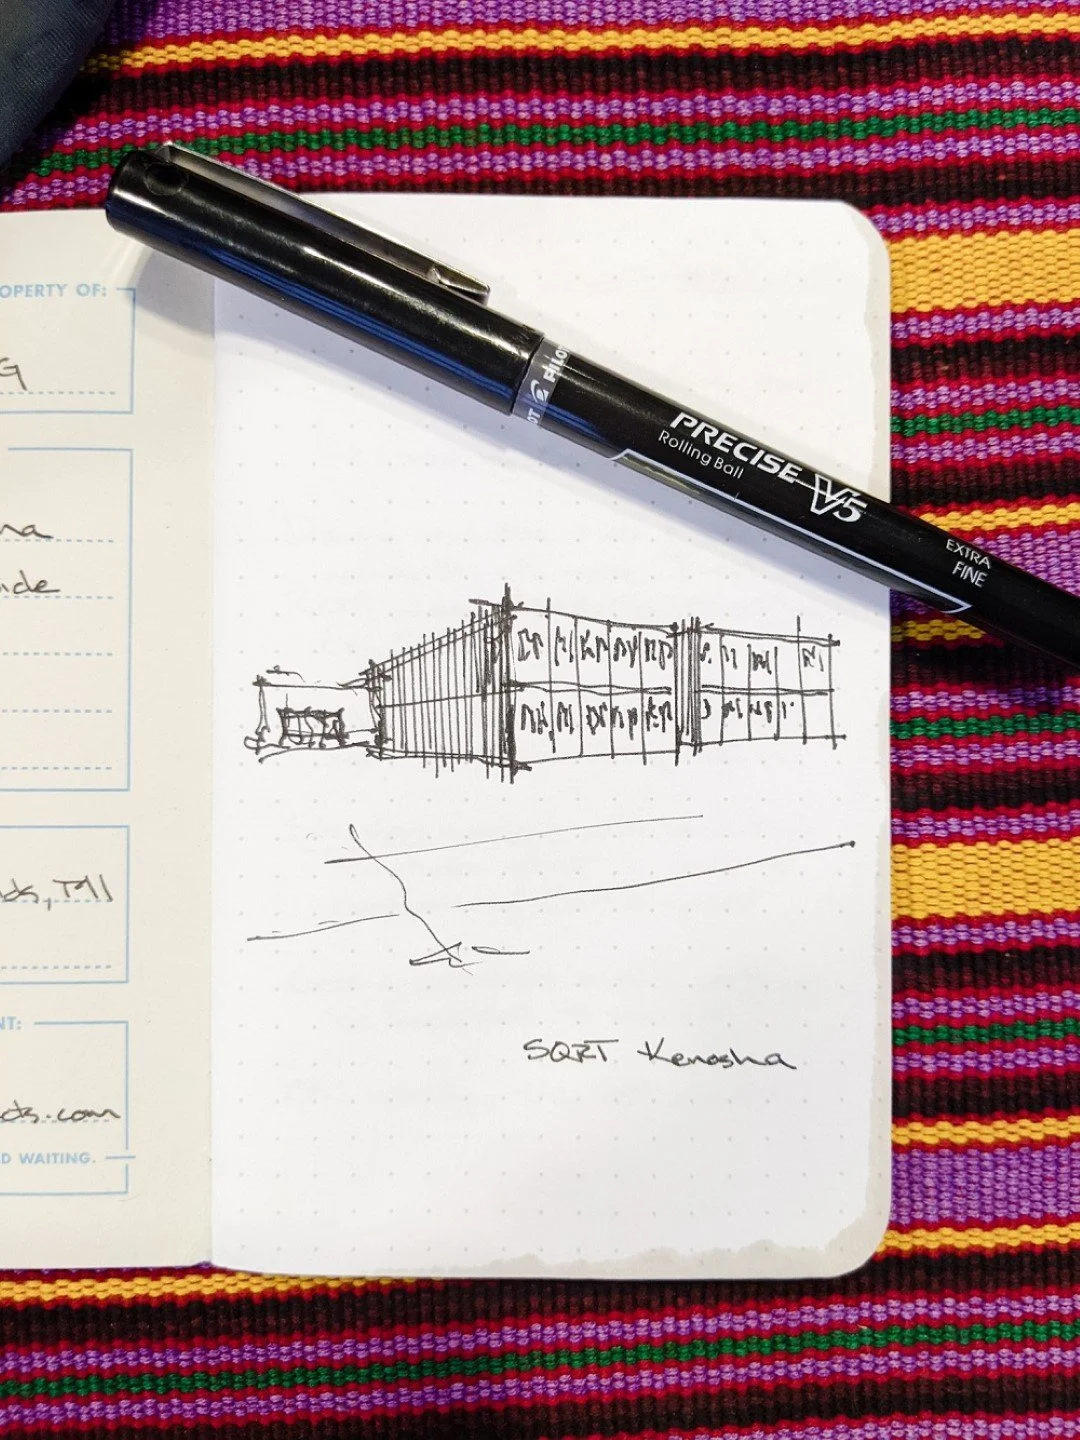 OPERTY OF:
G
ha
nde
ds, MI
NT:
ds.com
D WAITING.
PILOT
PRECISE V5
Rolling Ball
EXTRA
FINE
SQRT Kenosha